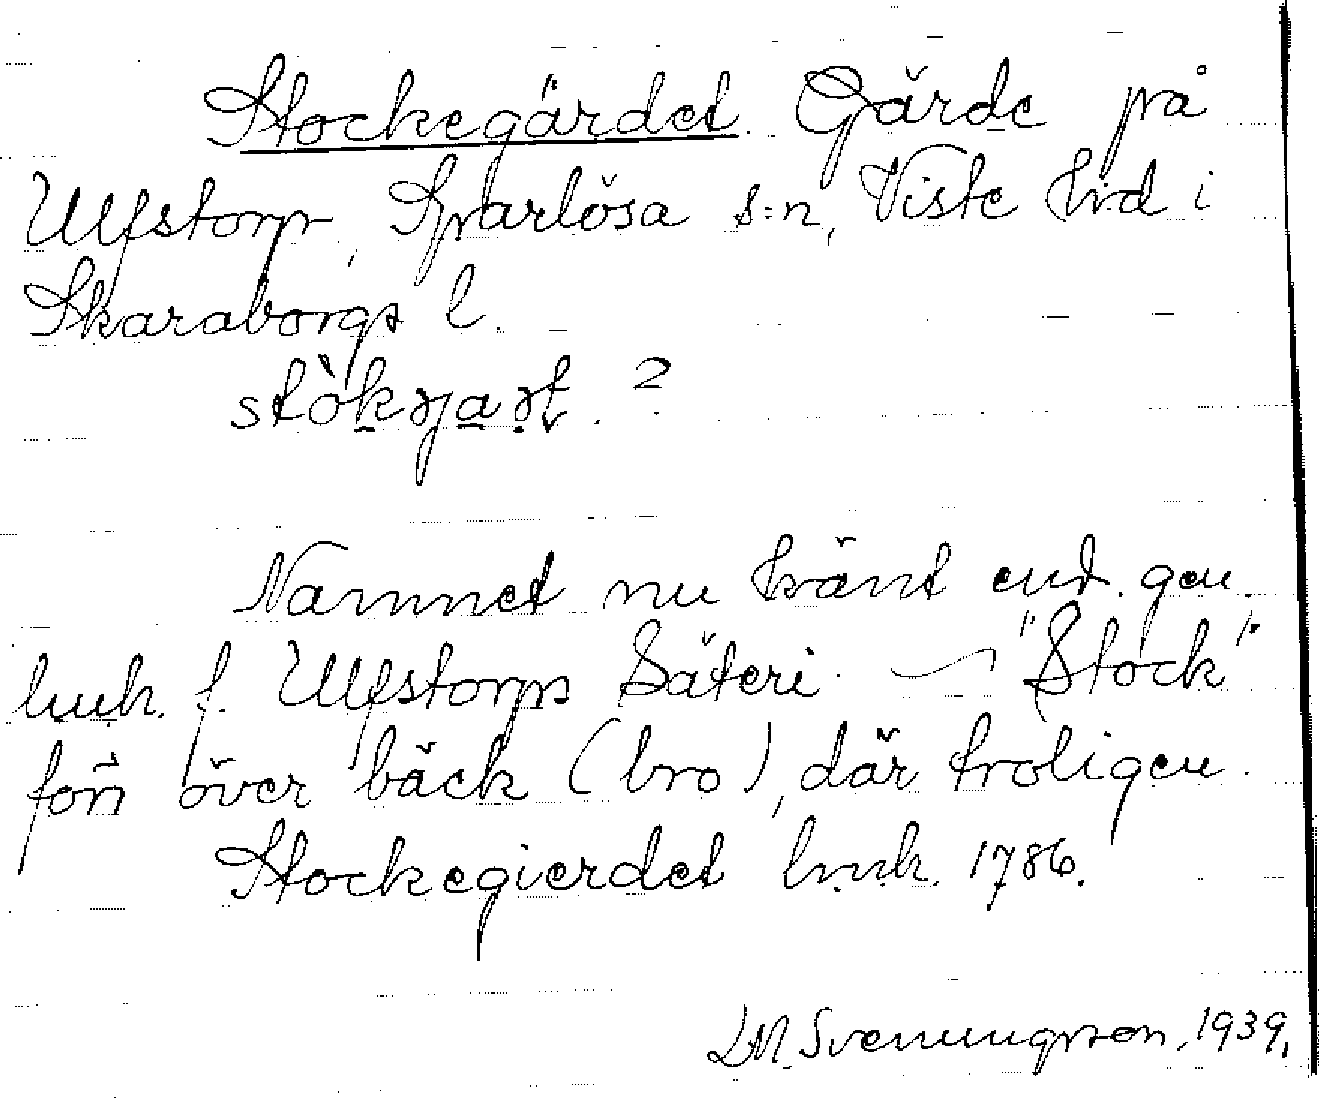 Stockegärdet. Gärde på
Ulfstorp, Sparlösa s:n, Viste hd i
Skaraborgs l.
Namnet nu känt end. gen.
lmk. f. Ulfstorps Säteri. "Stock"
förr över bäck (bro), där troligen.
Stockegierdet lmk. 1786.
LM. Svenungsson, 1939.